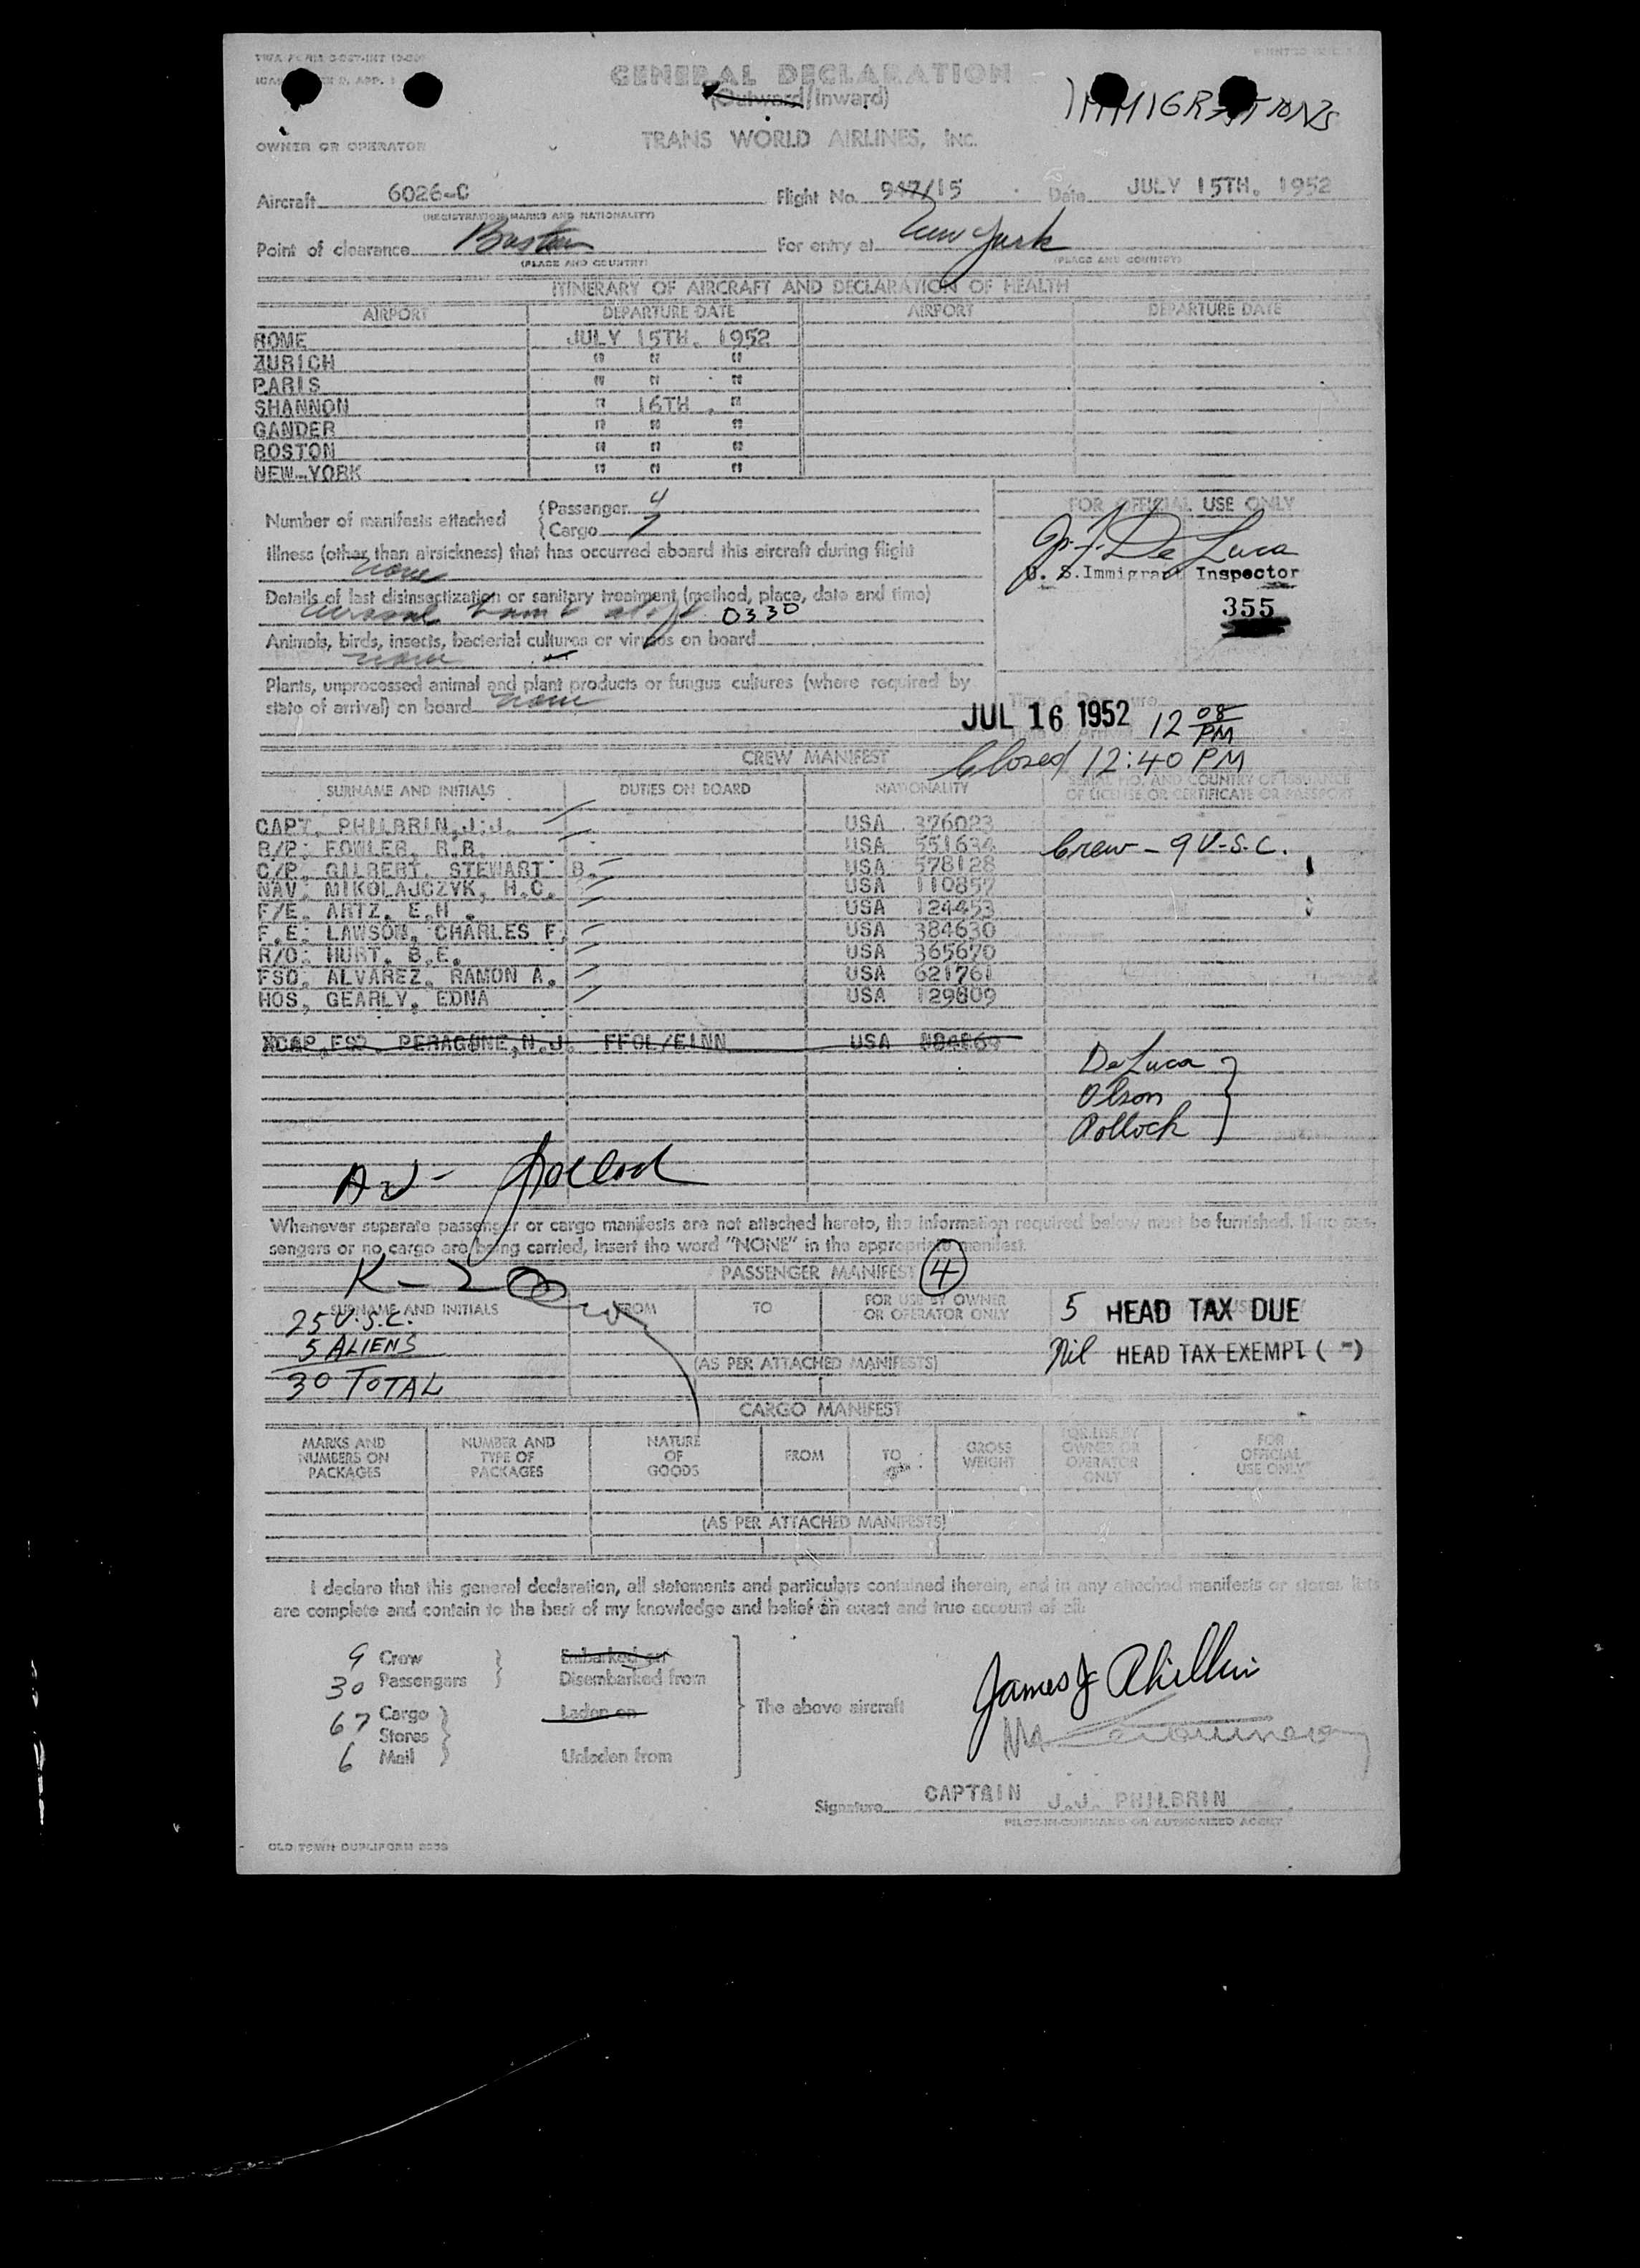 GENERAL DECLARATION
(Outward/Inward)
IMMIGRATIONS
OWNER OR OPERATOR
TRANS WORLD AIRLINES, INC.
Aircraft 6026-C Flight No. 947/15 Date JULY 15TH. 1952
(REGISTRATION MARKS AND NATIONALITY)
Point of clearance Boston For entry at New York
(PLACE AND COUNTRY) (PLACE AND COUNTRY)
ITINERARY OF AIRCRAFT AND DECLARATION OF HEALTH
AIRPORT DEPARTURE DATE AIRPORT DEPARTURE DATE
ROME JULY 15TH. 1952
ZURICH " " "
PARIS " " "
SHANNON " 16TH . "
GANDER " " "
BOSTON " " "
NEW-YORK " " "
Number of manifests attached
(Passenger 4
(Cargo 7
FOR OFFICIAL USE ONLY
Illness (other than airsickness) that has occurred aboard this aircraft during flight
none
U. S. Immigrant Inspector
355
Details of last disinsectization or sanitary treatment (method, place, date and time)
0330
Animals, birds, insects, bacterial cultures or viruses on board
none
Plants, unprocessed animal and plant products or fungus cultures (where required by
state of arrival) on board none
Time of Departure
JUL 16 1952 12 08 PM
Closed 12:40 PM
CREW MANIFEST
SURNAME AND INITIALS DUTIES ON BOARD NATIONALITY SERIAL NO. AND COUNTRY OF ISSUANCE
OF LICENSE OR CERTIFICATE OR PASSPORT
CAPT. PHILBRIN,J.J. USA 376023
B/P: FOWLER, R.B. USA 551634 Crew - 9 U.S.C.
C/P. GILBERT. STEWART B. USA 578128
NAV: MIKOLAJCZYK, H.C. USA 110857
F/E. ARTZ, E.H . USA 124453
F.E: LAWSON, CHARLES F. USA 384630
R/O: HURT. B.E. USA 365670
FSO. ALVAREZ. RAMON A. USA 621761
HOS, GEARLY. EDNA USA 129809
PERAGUNE,N.J. USA
DeLuca
Olson
Pollock
Whenever separate passenger or cargo manifests are not attached hereto, the information required below must be furnished. If no pas-
sengers or no cargo are being carried, insert the word "NONE" in the appropriate manifest.
PASSENGER MANIFEST 4
SURNAME AND INITIALS FROM TO FOR USE BY OWNER
OR OPERATOR ONLY
25 U.S.C.
5 ALIENS
30 TOTAL
5 HEAD TAX DUE
Nil HEAD TAX EXEMPT ( - )
(AS PER ATTACHED MANIFESTS)
CARGO MANIFEST
MARKS AND
NUMBERS ON
PACKAGES
NUMBER AND
TYPE OF
PACKAGES
NATURE
OF
GOODS
FROM
TO
GROSS
WEIGHT
FOR USE BY
OWNER OR
OPERATOR
ONLY
FOR
OFFICIAL
USE ONLY
(AS PER ATTACHED MANIFESTS)
I declare that this general declaration, all statements and particulars contained therein, and in any attached manifests or stores lists
are complete and contain to the best of my knowledge and belief an exact and true account of all:
9 Crew Embarked on
30 Passengers Disembarked from
67 Cargo Laden on
Stores
6 Mail Unladen from
The above aircraft
James J Philbrin
Signature CAPTAIN J.J. PHILBRIN
PILOT-IN-COMMAND OR AUTHORIZED AGENT
OLD TOWN DUPLIFORM